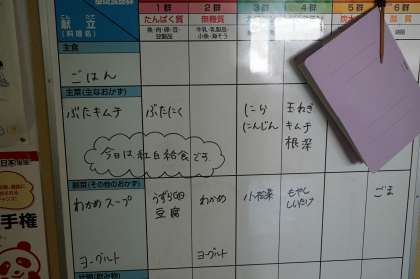 献立
(料理名)
1 群
たんぱく質
魚・肉・卵・豆・
豆製品
2 群
無機質
牛乳・乳製品
小魚・海そう
3 群
4 群
5 群
6 群
主食
ごはん
主菜(主なおかず)
ぶたキムチ
ぶたにく
にら
にんじん
玉ねぎ
キムチ
根深
今日は紅白給食です。
副菜(その他のおかず)
わかめスープ
うずら卵
豆腐
わかめ
小松菜
もやし
しいたけ
ごま
ヨーグルト
ヨーグルト
手権